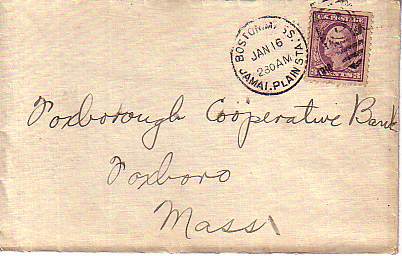 BOSTON, MASS.
JAN 16
2 30 AM
JAMAI. PLAIN STA.
U.S. POSTAGE
Foxborough Cooperative Bank
Foxboro
Mass.